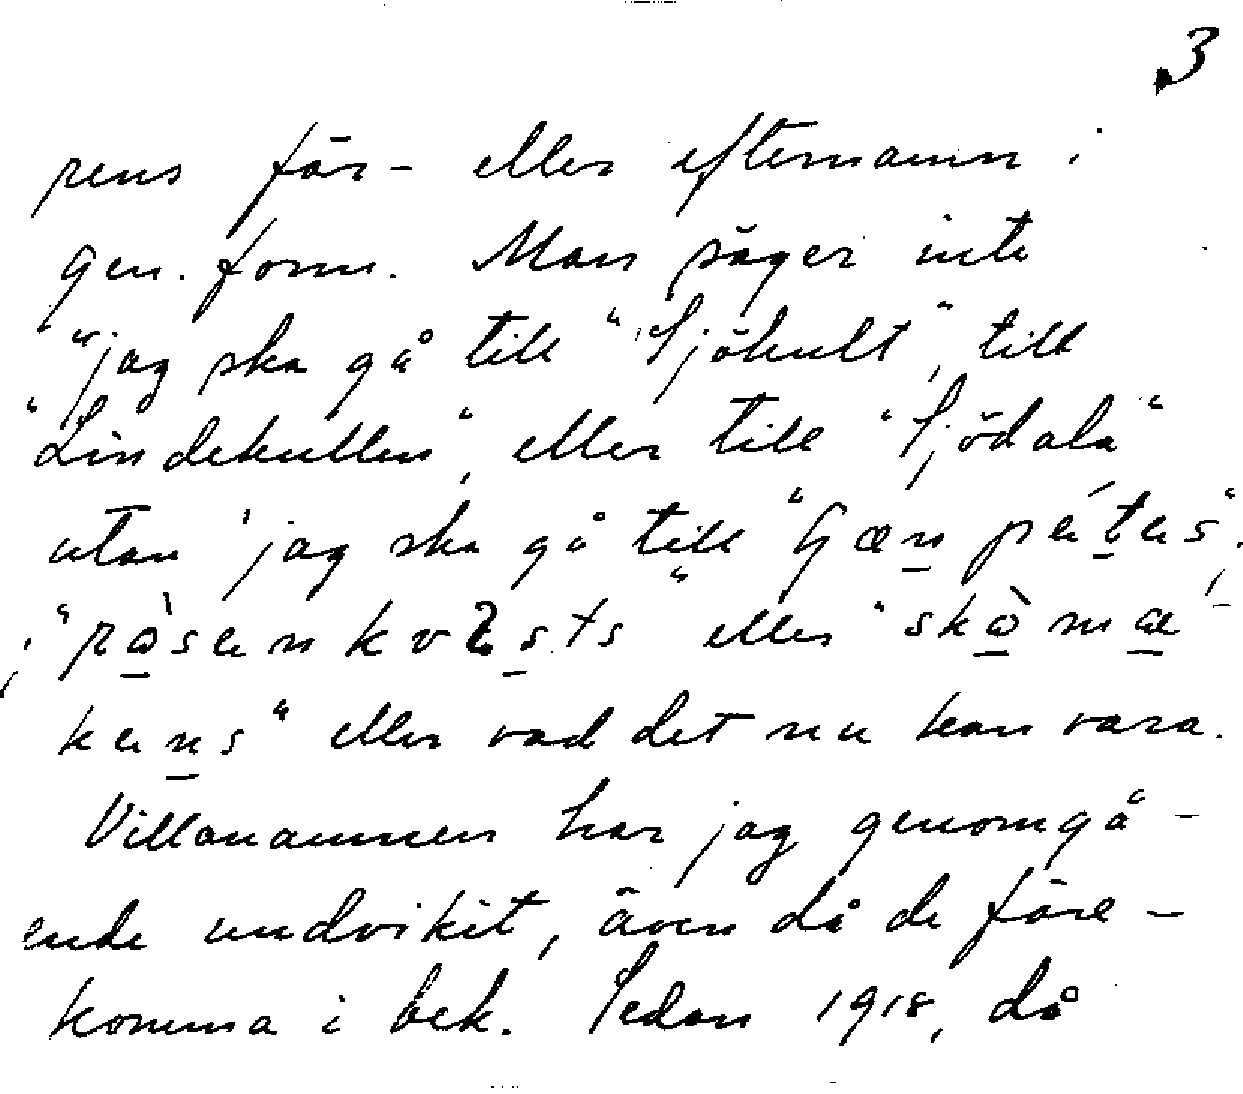 3
pens för- eller efternamn i
gen. form. Man säger inte
"jag ska gå till "Sjöhult", till
"Lindekullen", eller till "Sjödala"
utan "jag ska gå till "Gæn pétɐs",
"rɔ̀sɐn kvɪsts" eller "skɔ̀mæ-
kɐns" eller vad det nu kan vara.
Villanamnen har jag genomgå-
ende undvikit, även då de före-
komma i bek. Sedan 1918, då